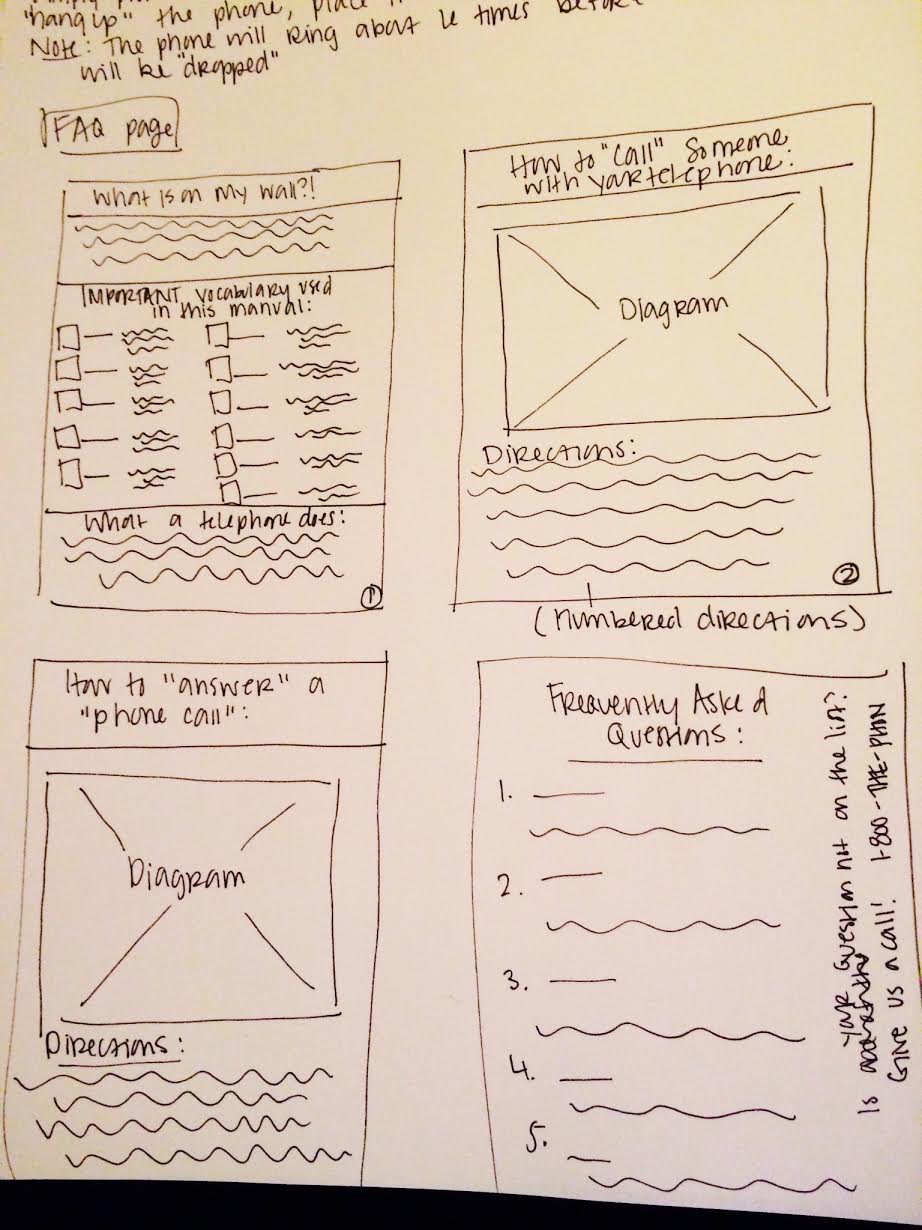 "hang up" the phone, place
Note: The phone will ring about 6 times before
will be "dropped"
FAQ page
What is on my wall?!
IMPORTANT vocabulary used
in this manual:
What a telephone does:
1
How to "call" someone
with your telephone:
Diagram
Directions:
2
(numbered directions)
How to "answer" a
"phone call":
Diagram
Directions:
Frequently Asked
Questions:
1.
2.
3.
4.
5.
Is your question not on the list?
Give us a call! 1-800-THE-PHON